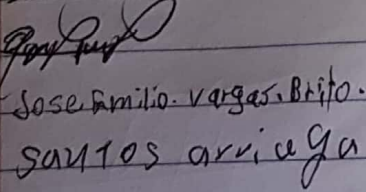 Jose Emilio. Vargas. Brito.
santos arriaga